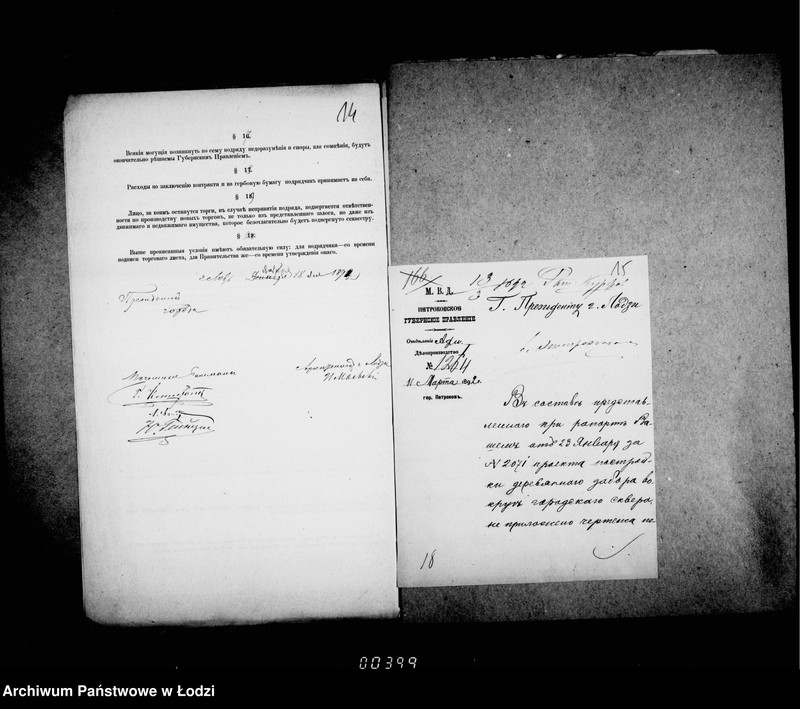 14
§ 16.
Всякія могущія возникнуть по сему подряду недоразумѣнія и споры, или сомнѣнія, будутъ
окончательно рѣшаемы Губернскимъ Правленіемъ.
§ 17.
Расходы по заключенію контракта и на гербовую бумагу подрядчикъ принимаетъ на себя.
§ 18.
Лицо, за коимъ останутся торги, въ случаѣ непринятія подряда, подвергается отвѣтствен-
ности по производству новыхъ торговъ, не только изъ представленнаго залога, но даже изъ
движимаго и недвижимаго имущества, которое безотлагательно будетъ подвергнуто секвестру.
§ 19.
Выше прописанныя условія имѣютъ обязательную силу: для подрядчика—со времени
подписи торговаго листа, для Правительства же—со времени утвержденія онаго.
18 дня 1892
Президентъ
города
Архитекторъ г. Лодзи
15
166
13
3
М. В. Д.
ПЕТРОКОВСКОЕ
ГУБЕРНСКОЕ ПРАВЛЕНІЕ
Отдѣленіе Адм.
Дѣлопроизводство 1
№ 1264
11 Марта 1892 г.
гор. Петроковъ.
Г. Президенту г. Лодзи
Въ составѣ представ
леннаго при рапортѣ Ва
шемъ отъ 23 Января за
N 2071 проекта построй
ки деревяннаго забора во
кругъ городскаго сквера,
не приложено чертежа не
18
00399
Archiwum Państwowe w Łodzi